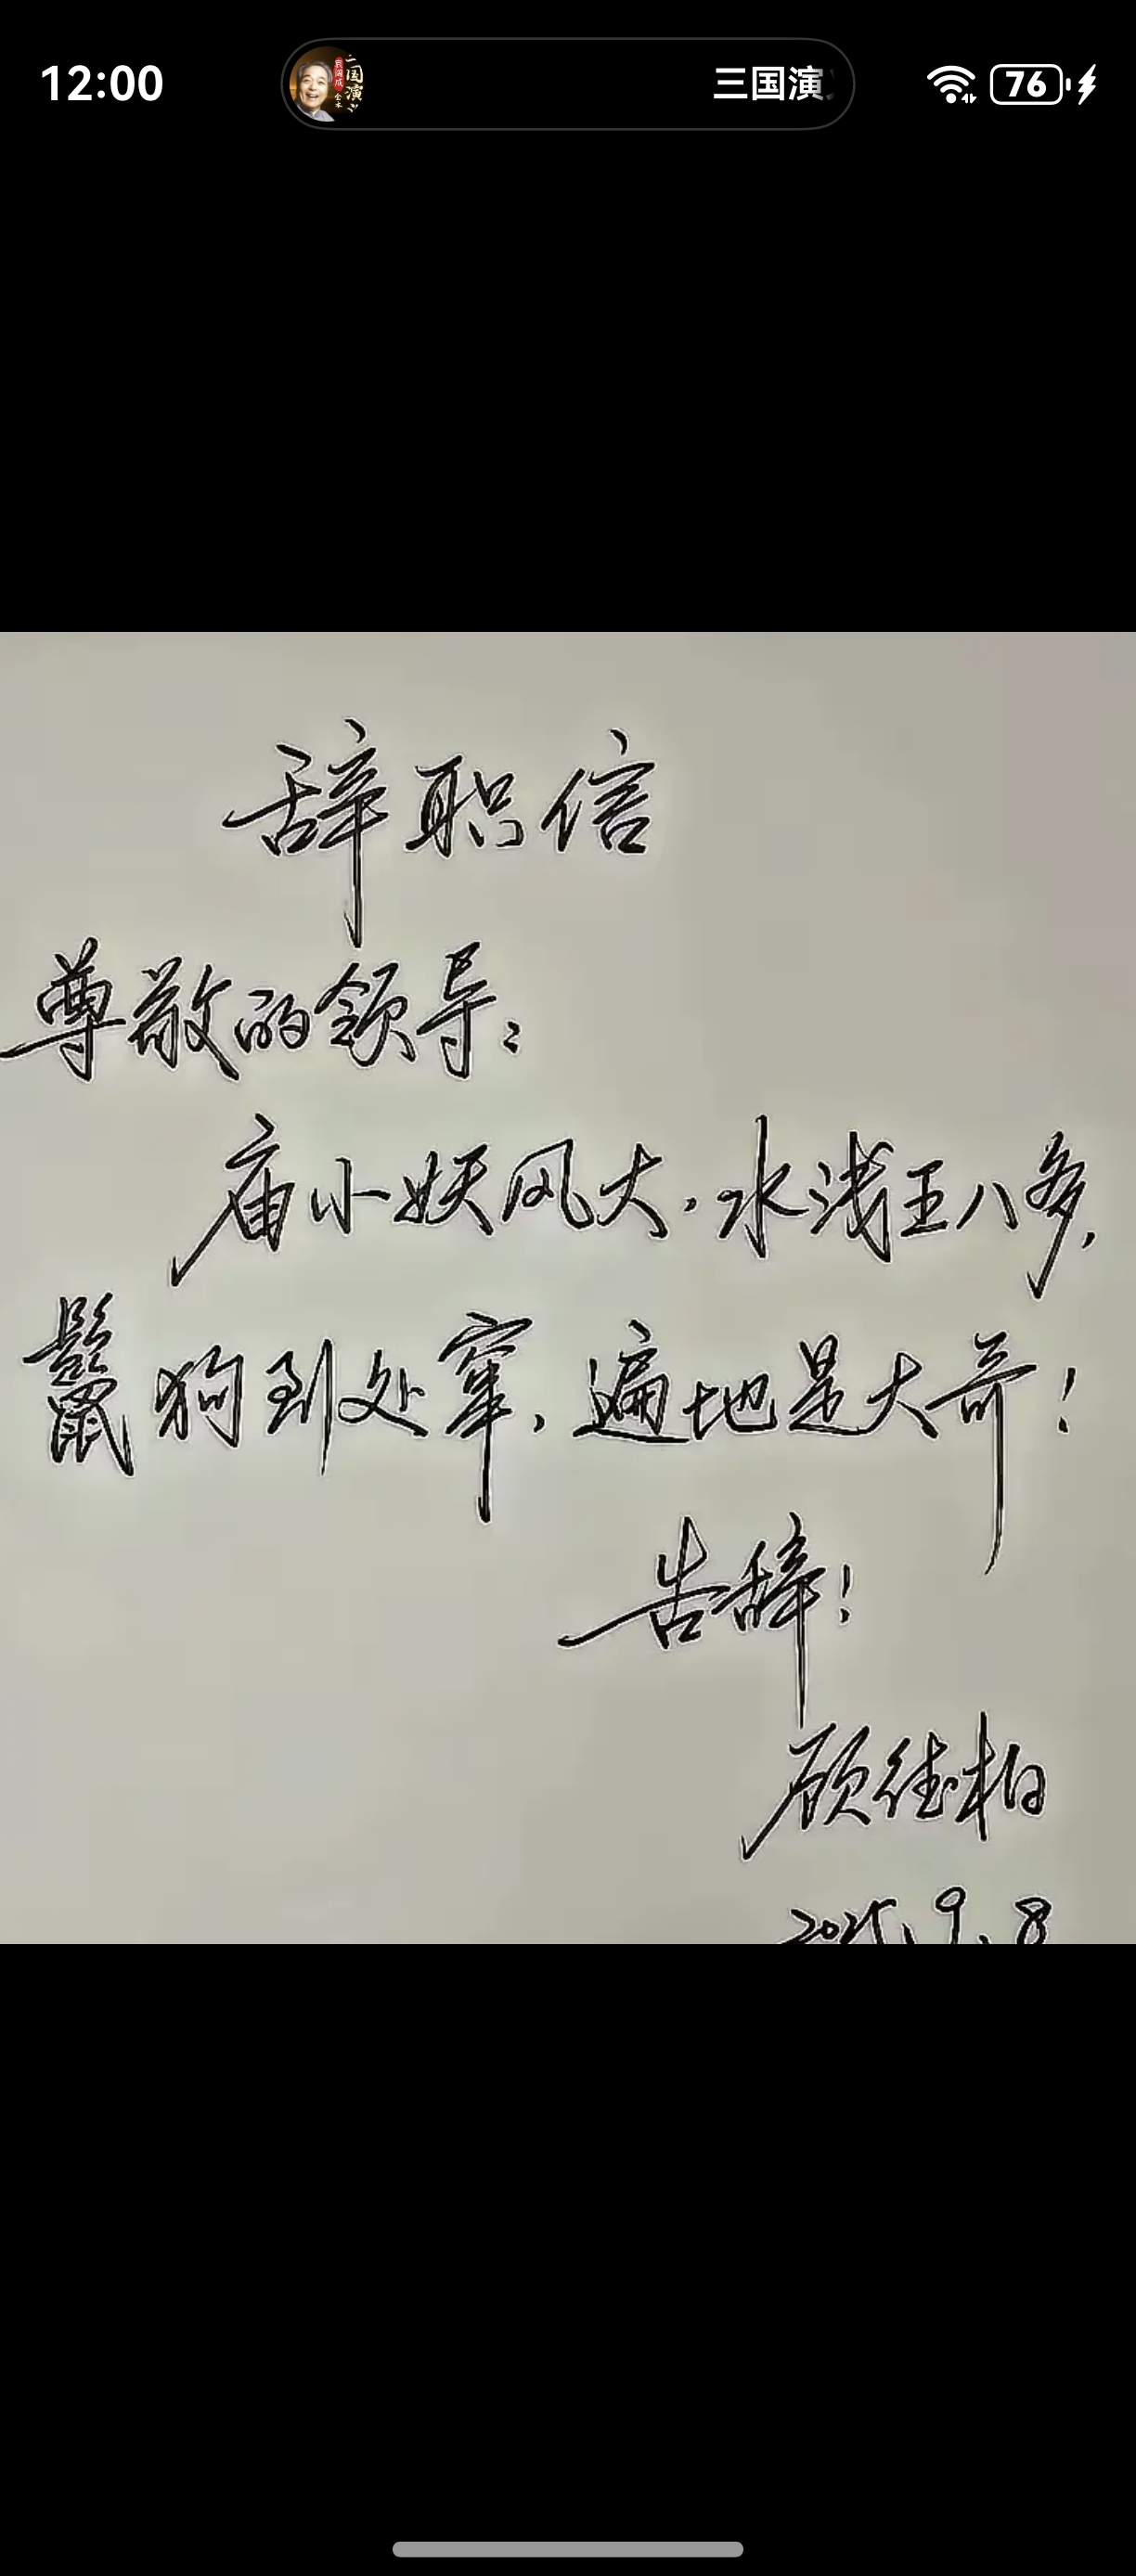 12:00
三国演
76
辞职信
尊敬的领导:
庙小妖风大,水浅王八多,
鬣狗到处窜,遍地是大哥!
告辞!
顾往柏
2025.9.8